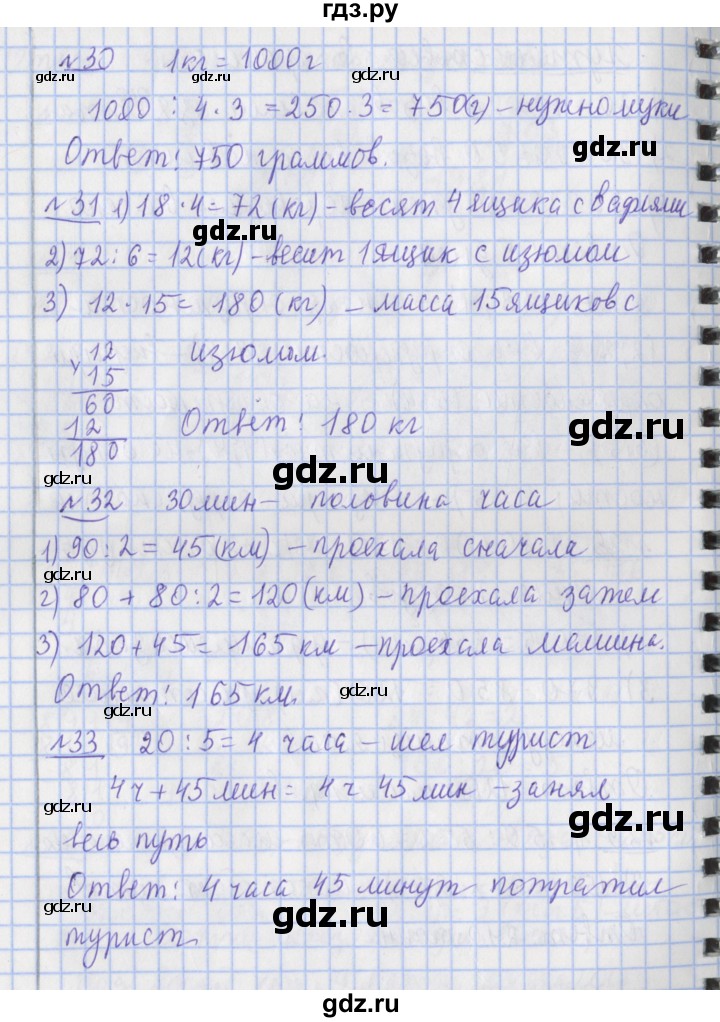 гдз.ру
№30 1кг = 1000г
gdz.ru gdz.ru gdz.ru
1000 : 4 · 3 = 250 · 3 = 750(г) – нужно муки
gdz.ru
Ответ: 750 граммов.
gdz.ru
№31 1) 18 · 4 = 72 (кг) – весят 4 ящика с вафлями
gdz.ru
2) 72 : 6 = 12 (кг) – весит 1 ящик с изюмом
3) 12 · 15 = 180 (кг) – масса 15 ящиков с
gdz.ru gdz.ru
12 изюмом.
× 15
60
12 Ответ: 180 кг
gdz.ru
180
gdz.ru
gdz.ru
№32 30 мин – половина часа
gdz.ru
1) 90 : 2 = 45 (км) – проехала сначала
gdz.ru gdz.ru
2) 80 + 80 : 2 = 120 (км) – проехала затем
3) 120 + 45 = 165 км – проехала машина.
gdz.ru
Ответ: 165 км.
gdz.ru gdz.ru
№33 20 : 5 = 4 часа – шел турист
4ч + 45 мин = 4 ч 45 мин – занял
gdz.ru gdz.ru
весь путь
Ответ: 4 часа 45 минут потратил
gdz.ru gdz.ru gdz.ru
турист.
gdz.ru